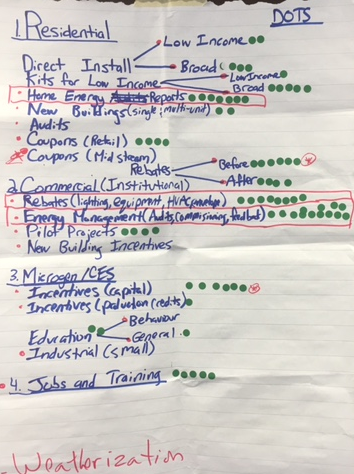 DOTS
1. Residential
Low Income
Direct Install
Broad
Kits for Low Income
Low Income
Broad
Home Energy Audits Reports
New Buildings (single; multi-unit)
Audits
Coupons (Retail)
Coupons (Mid stream)
Rebates
Before
After
2. Commercial (Institutional)
Rebates (lighting, equipment, HVAC, envelope)
Energy Management (Audits, commissioning,
Pilot Projects
New Building Incentives
3. Microgen/CES
Incentives (capital)
Incentives (
Behaviour
Education
General
Industrial (small)
4. Jobs and Training
Weatherization